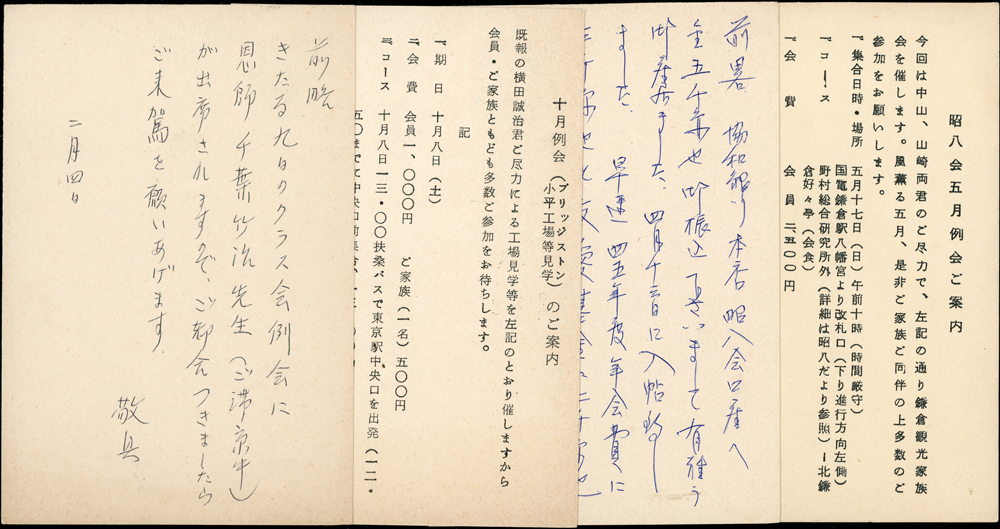 昭八会五月例会ご案内
今回は中山、山崎両君のご尽力で、左記の通り鎌倉観光家族
会を催します。風薫る五月、是非ご家族ご同伴の上多数のご
参加をお願いします。
一、集合日時・場所 五月十七日（日）午前十時（時間厳守）
国電鎌倉駅八幡宮より改札口（下り進行方向左側）
一、コース 野村総合研究所外（詳細は昭八だより参照）ー北鎌
倉好々亭（会食）
一、会費 会員 二、五〇〇円
前略 協和銀行本店昭八会口座へ
金五千円也御振込下さいまして有難う
御座いました。四月十三日に入帖致し
ました。早速四五年度年会費に
十月例会（ブリッジストン小平工場等見学）のご案内
既報の横田誠治君ご尽力による工場見学等を左記のとおり催しますから
会員・ご家族ともども多数ご参加をお待ちします。
記
一、期日 十月八日（土）
一、会費 会員一、〇〇〇円 ご家族（一名）五〇〇円
一、コース 十月八日一三・〇〇扶桑バスで東京駅中央口を出発（一二・
五〇までに中央口前集合、
前略
きたる九日のクラス会例会に
恩師千葉竹治先生（ご滞京中）
が出席されますので、ご都合つきましたら
ご来駕を願いあげます
敬具
二月四日